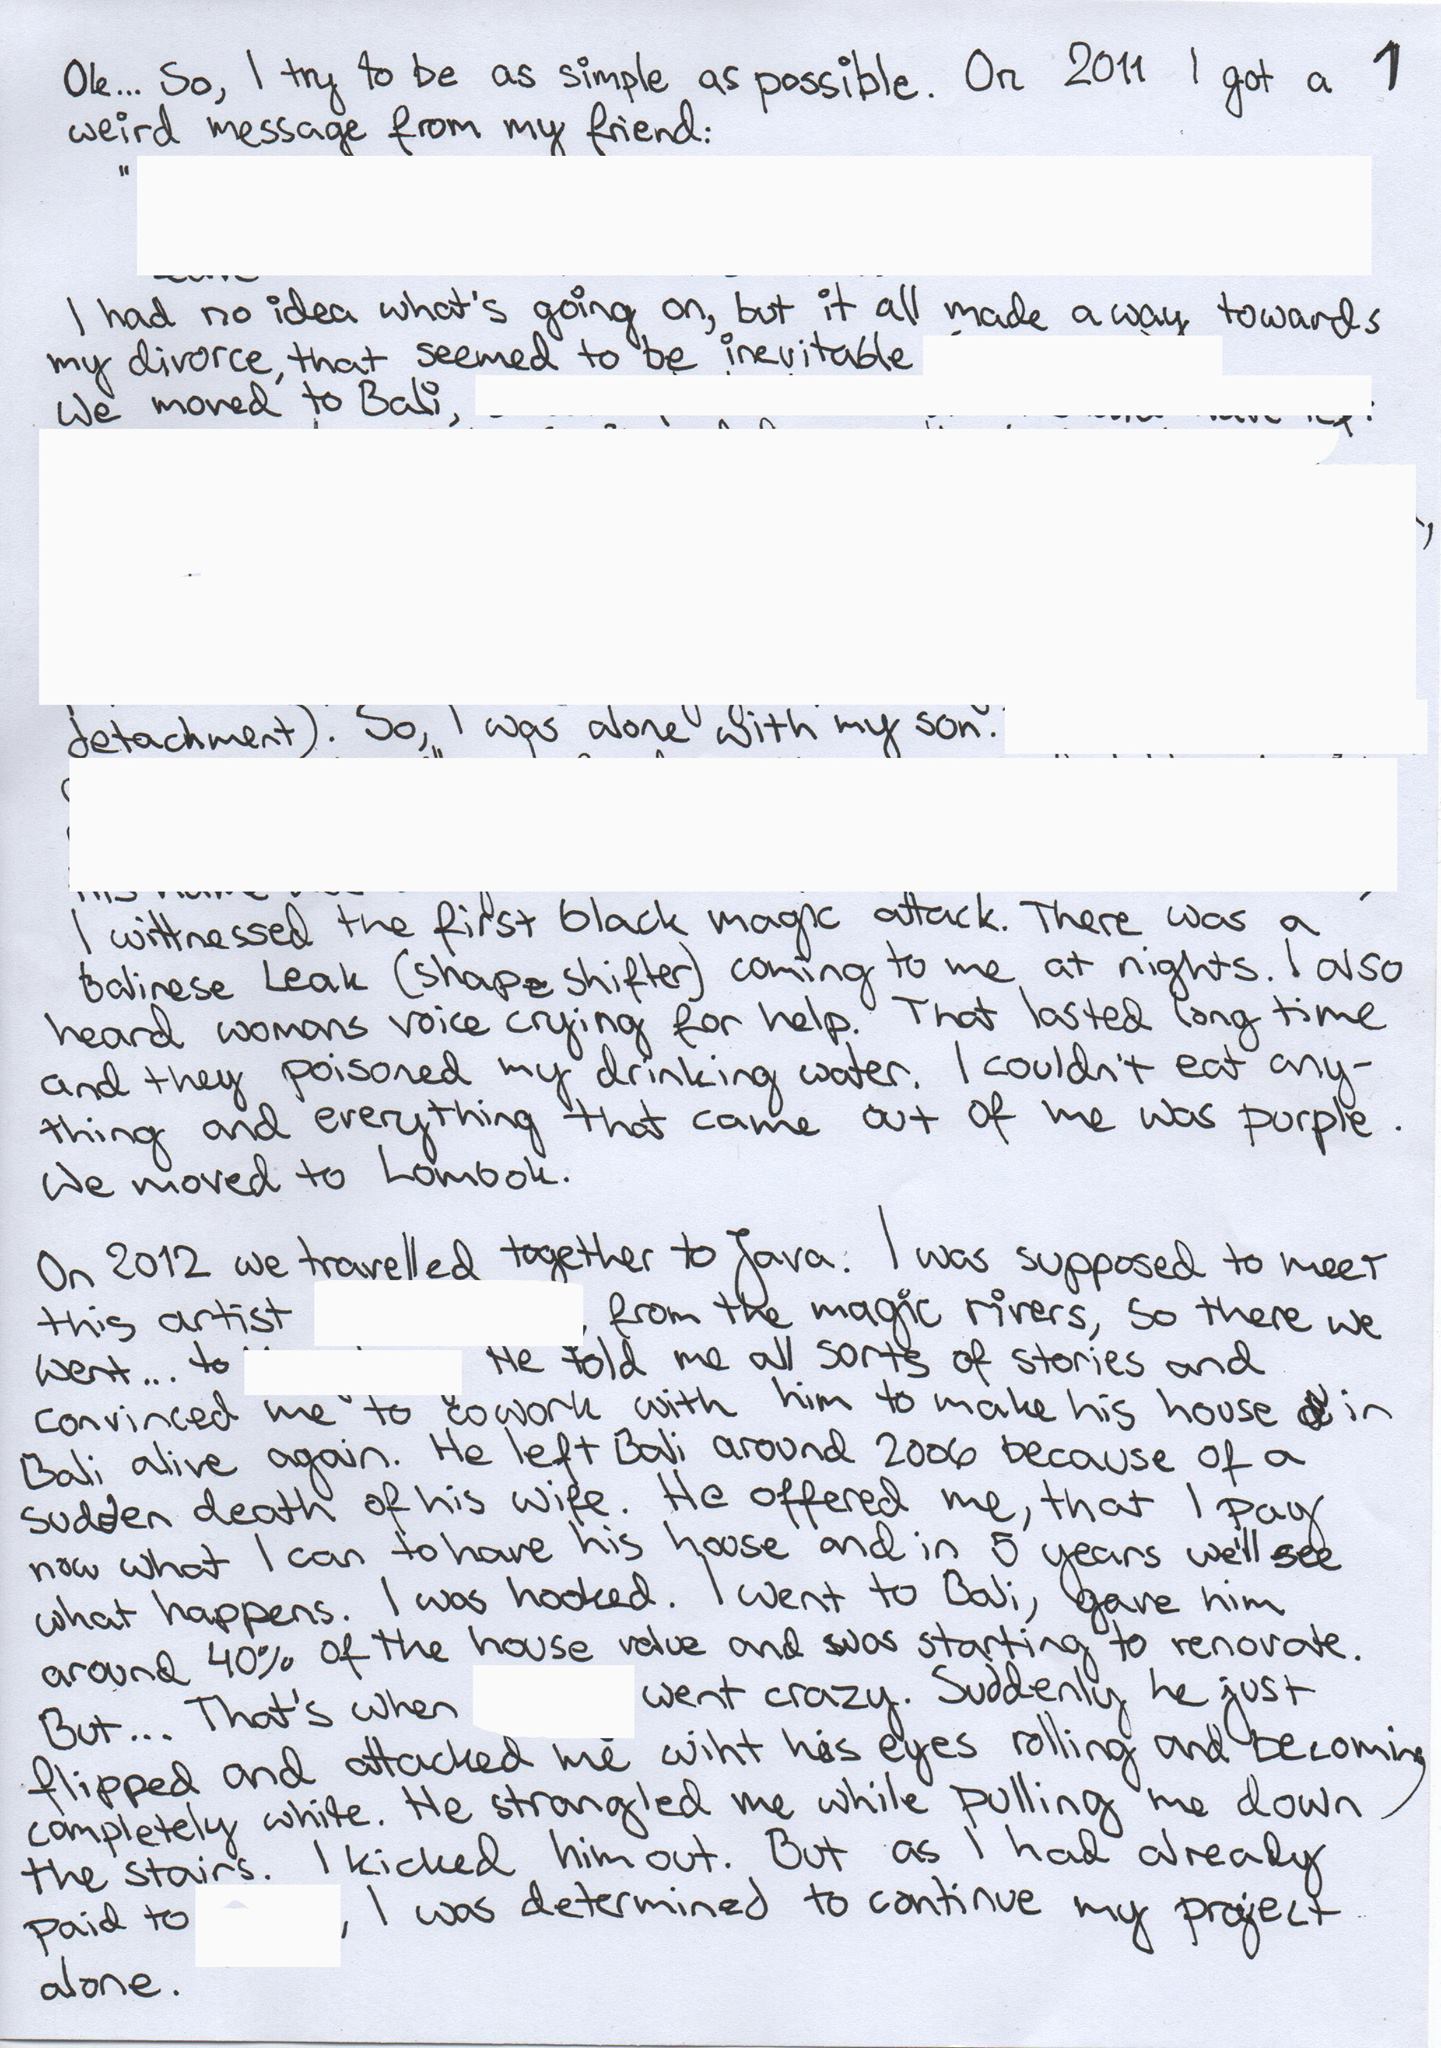 Ok... So, I try to be as simple as possible. On 2011 I got a 1
weird message from my friend:
"
I had no idea what's going on, but it all made a way towards
my divorce, that seemed to be inevitable
We moved to Bali,
detachment). So, I was alone with my son.
I wittnessed the first black magic attack. There was a
Balinese Leak (shape shifter) coming to me at nights. I also
heard womans voice crying for help. That lasted long time
and they poisoned my drinking water. I couldn't eat any-
thing and everything that came out of me was purple.
We moved to Lombok.
On 2012 we travelled together to Java. I was supposed to meet
this artist , from the magic rivers, so there we
went... to He told me all sorts of stories and
convinced me to cowork with him to make his house in
Bali alive again. He left Bali around 2006 because of a
sudden death of his wife. He offered me, that I pay
now what I can to have his house and in 5 years we'll see
what happens. I was hooked. I went to Bali, gave him
around 40% of the house value and was starting to renovate.
But... That's when went crazy. Suddenly he just
flipped and attacked me wiht his eyes rolling and becoming
completely white. He strangled me while pulling me down
the stairs. I kicked him out. But as I had already
paid to , I was determined to continue my project
alone.